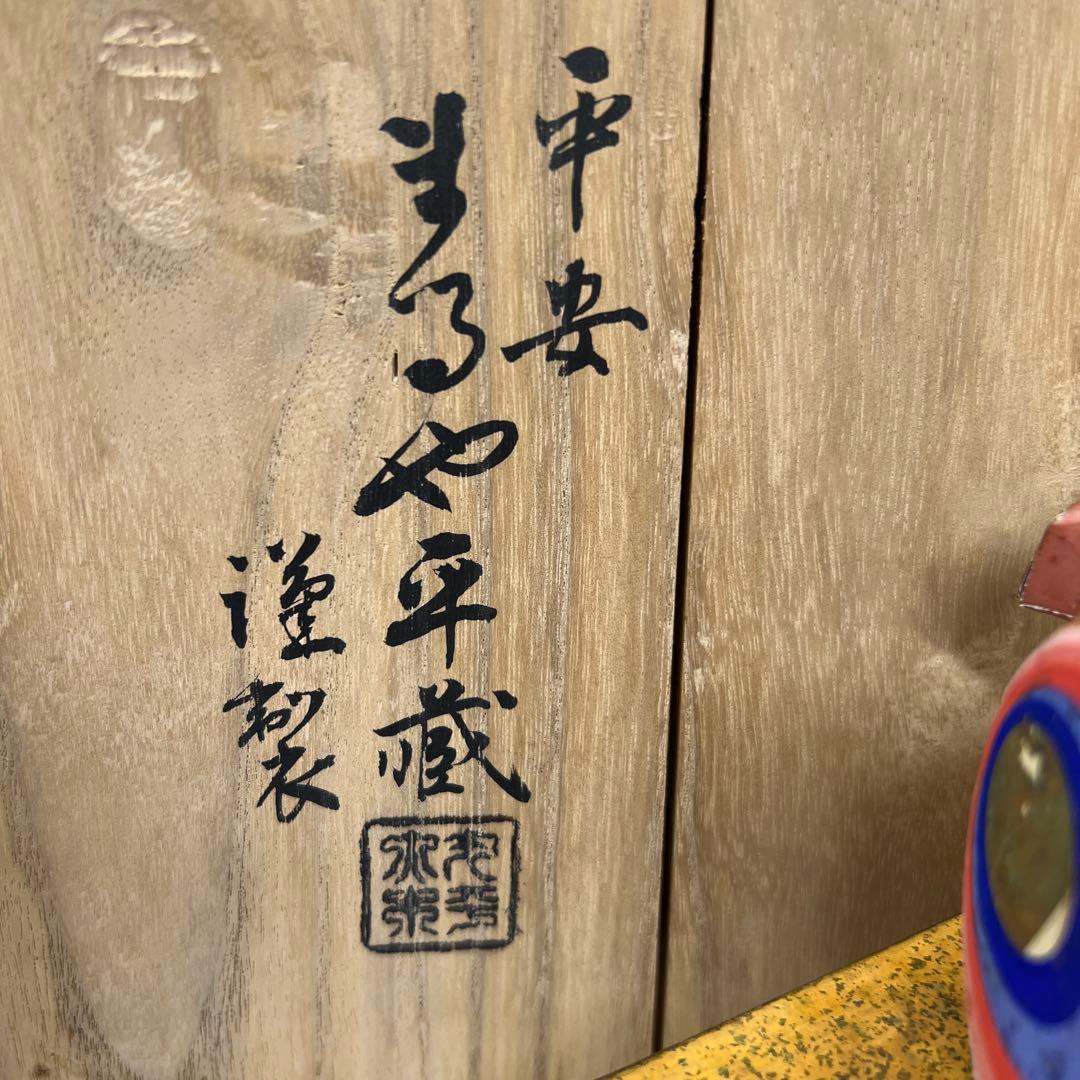 平安
まるや平藏
謹製